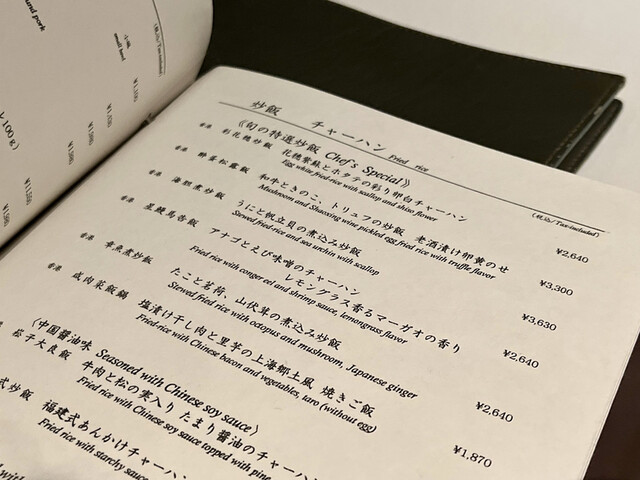 und pork
(税込/Tax-included)
小碗
small bowl
¥1,200
炒飯 チャーハン Fried rice
(税込/Tax-included)
《旬の特選炒飯 Chef's Special》
彩花穂炒飯 花穂紫蘇とホタテの彩り卵白チャーハン ¥2,640
Egg white fried rice with scallop and shiso flower
酔蛋松露飯 和牛ときのこ、トリュフの炒飯 老酒漬け卵黄のせ ¥3,300
Mushroom and Shaoxing wine pickled egg fried rice with truffle flavor
海胆煮炒飯 うにと帆立貝の煮込み炒飯 ¥3,630
Stewed fried rice and sea urchin with scallop
星鰻馬告飯 アナゴとえび味噌のチャーハン
レモングラス香るマーガオの香り ¥2,640
Fried rice with conger eel and shrimp sauce, lemongrass flavor
章魚煮炒飯 たこと茗荷、山伏茸の煮込み炒飯 ¥2,640
Stewed fried rice with octopus and mushroom, Japanese ginger
咸肉菜飯鍋 塩漬け干し肉と里芋の上海郷土風 焼きご飯 ¥1,870
Fried-rice with Chinese bacon and vegetables, taro (without egg)
〈中国醤油味 Seasoned with Chinese soy sauce〉
松子大良飯 牛肉と松の実入り たまり醤油のチャーハ
Fried rice with Chinese soy sauce topped with pine
式炒飯 福建式あんかけチャーハン
Fried rice with starchy sauce